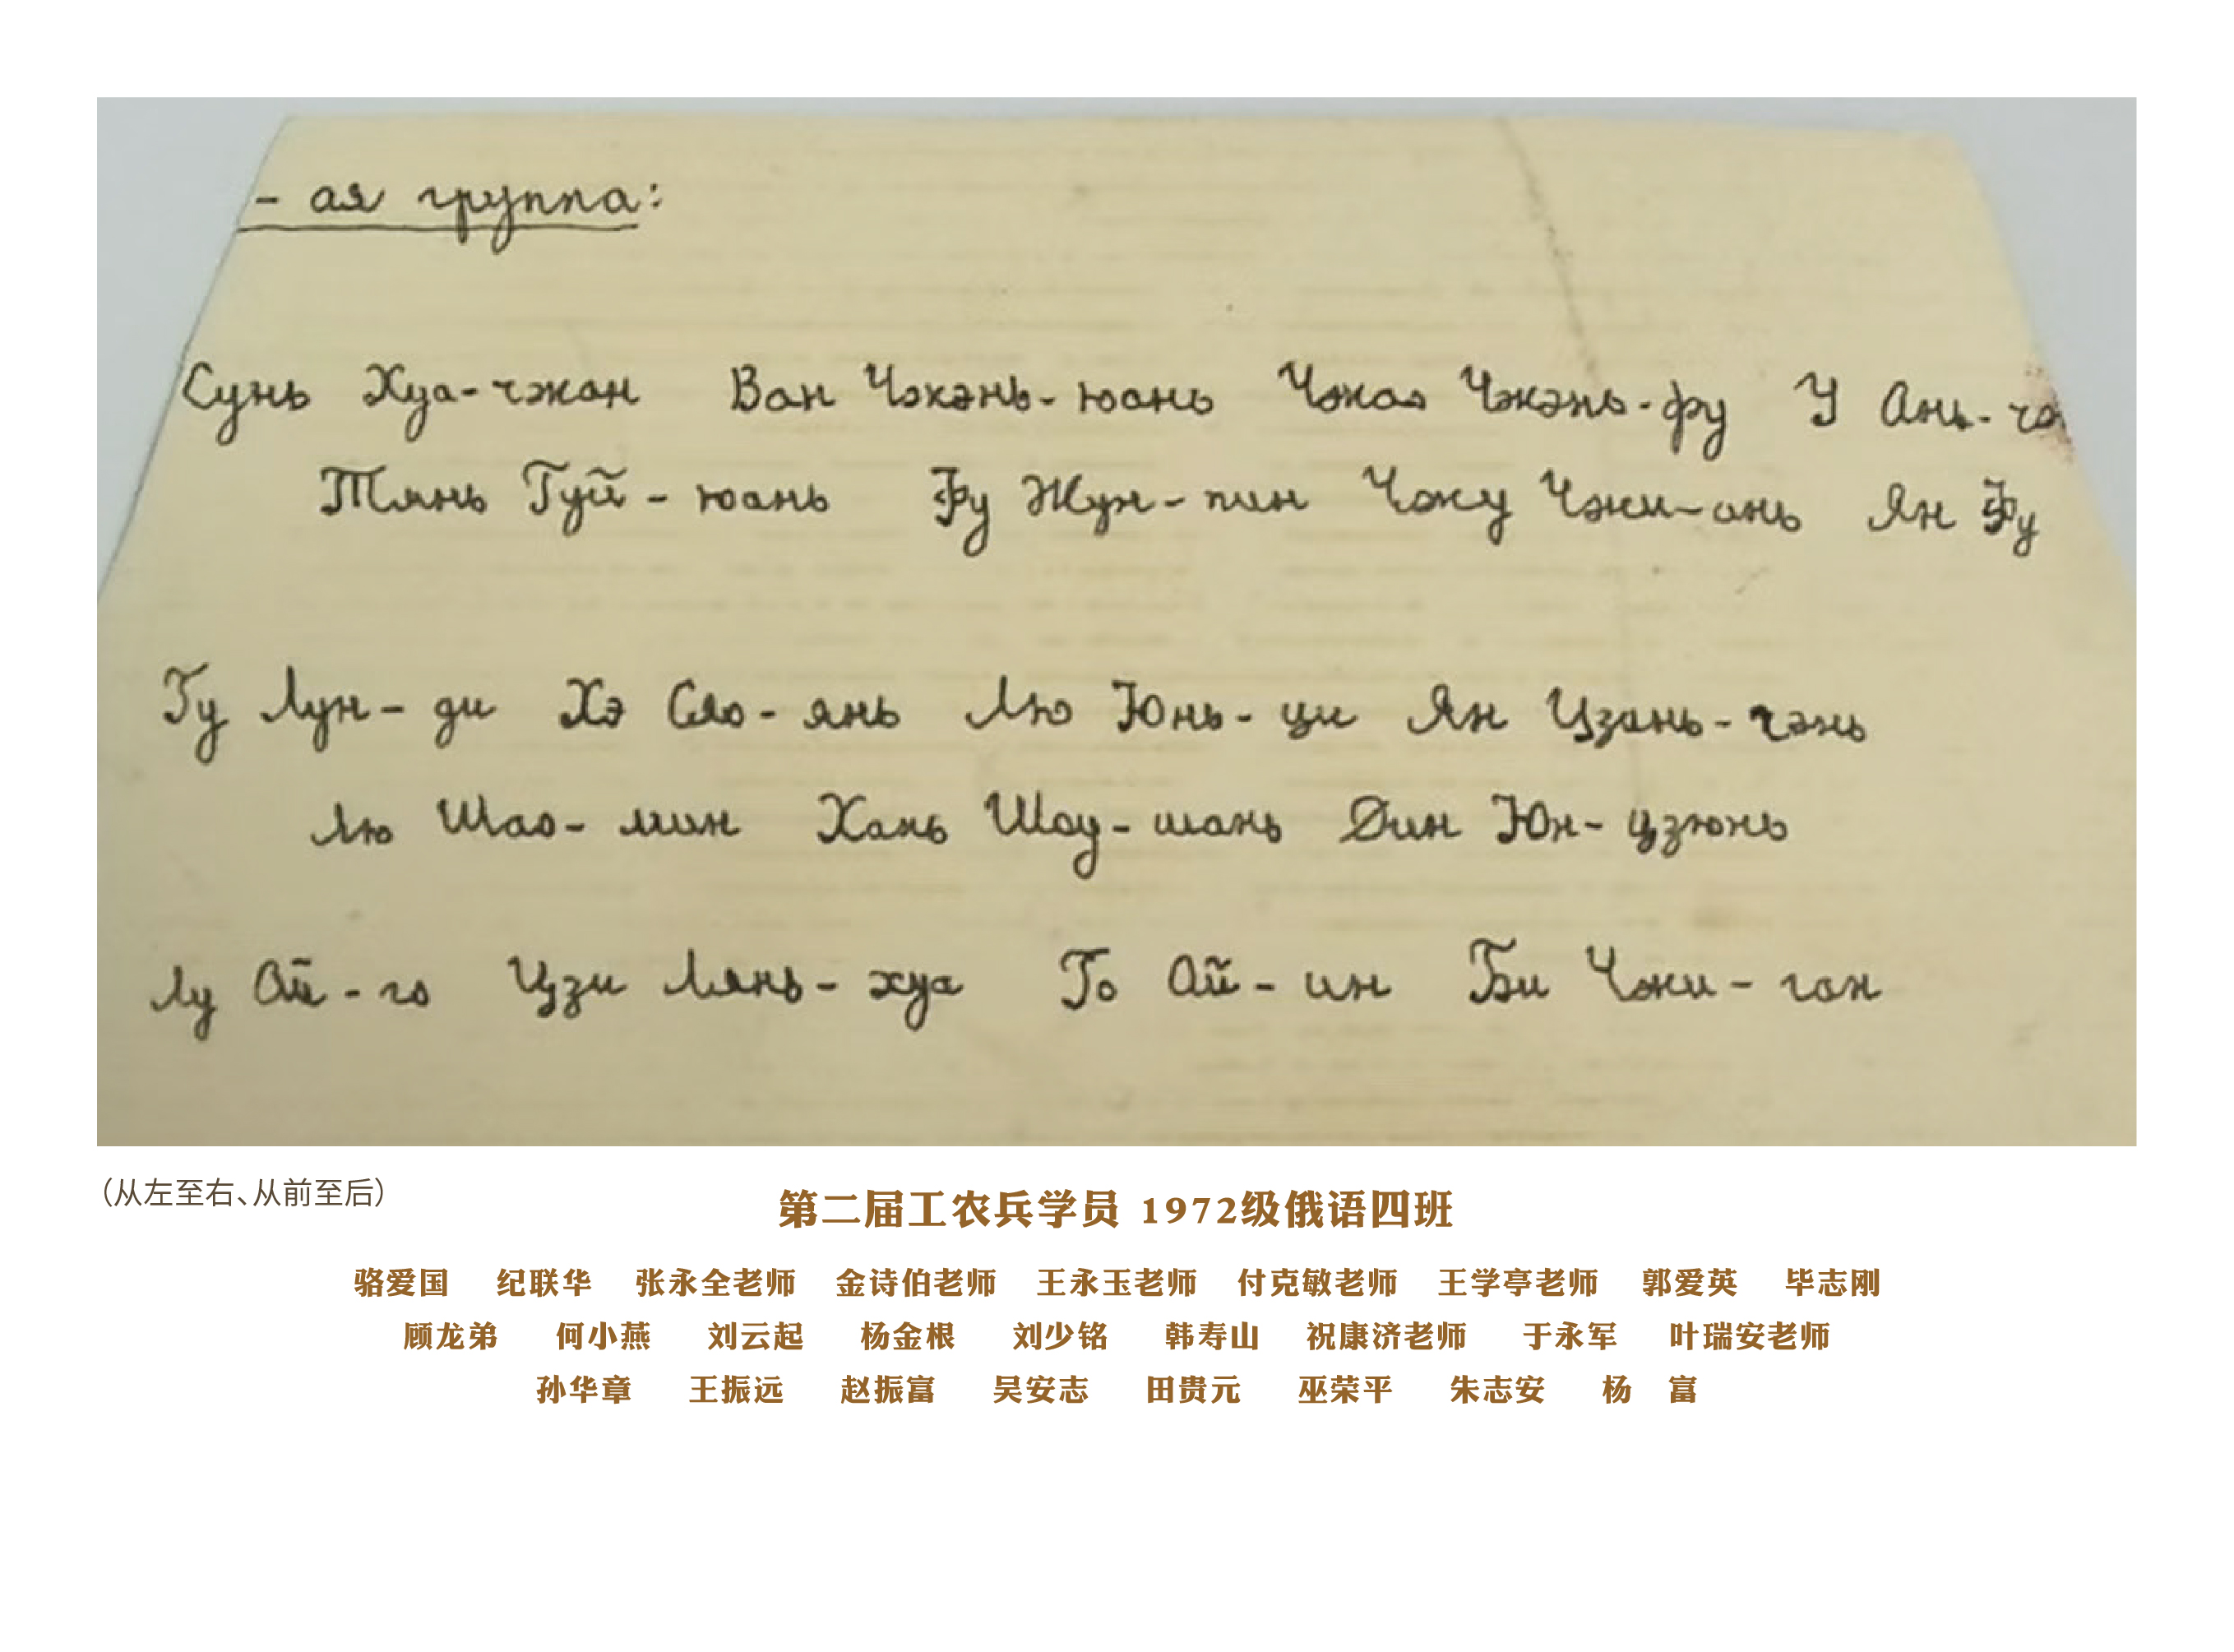 - ая группа:
Сунь Хуа-чжан Ван Чжэнь-юань Чжао Чжэнь-фу У Ань-
Тянь Гуй-юань Фу Жун-пин Чжу Чжи-ань Ян Фу
Гу Лун-ди Хэ Сяо-янь Лю Юнь-ци Ян Цзань-гэнь
Лю Шао-мин Хань Шоу-шань Дин Юн-цзюнь
Лу Ай-го Цзи Лянь-хуа Го Ай-ин Би Чжи-ган
（从左至右、从前至后）
第二届工农兵学员 1972级俄语四班
骆爱国 纪联华 张永全老师 金诗伯老师 王永玉老师 付克敏老师 王学亭老师 郭爱英 毕志刚
顾龙弟 何小燕 刘云起 杨金根 刘少铭 韩寿山 祝康济老师 于永军 叶瑞安老师
孙华章 王振远 赵振富 吴安志 田贵元 巫荣平 朱志安 杨 富